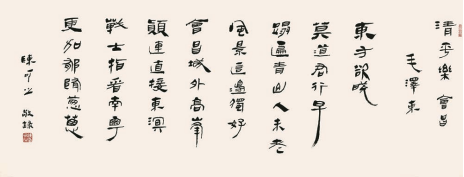 清平樂 會昌
毛澤東
東方欲曉
莫道君行早
踏遍青山人未老
風景這邊獨好
會昌城外高峰
顛連直接東溟
戰士指看南粵
更加郁郁蔥蔥
敬錄